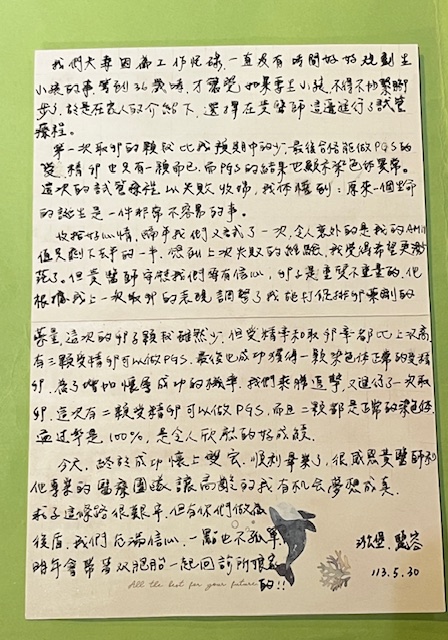 我們夫妻因為工作忙碌，一直沒有時間好好規劃生
小孩的事，等到36歲時，才驚覺如果要生小孩，不得不加緊腳
步了，於是在家人的介紹下，選擇在黃醫師這邊進行了試管
療程。
第一次取卵的顆數比我預期中的少，最後合格能做PGS的
受精卵也只有一顆而已，而PGS的結果也顯示染色體異常。
這次的試管療程以失敗收場，我體悟到：原來一個生命
的誕生是一件非常不容易的事。
收拾好心情，隔年我們又試了一次，令人意外的是我的AMH
值只剩下去年的一半，想到上次失敗的經驗，我覺得希望更渺
茫了。但黃醫師安慰我們要有信心，卵子是重質不重量的，他
根據我上一次取卵的表現調整了我施打促排卵藥劑的
劑量，這次的卵子顆數雖然少，但受精率和取卵率都比上次高，
有三顆受精卵可以做PGS，最後也成功獲得一顆染色體正常的受精
卵。為了增加懷孕成功的機率，我們乘勝追擊，又進行了一次取
卵，這次有二顆受精卵可以做PGS，而且二顆都是正常的染色體，
通過率是100%，是令人欣慰的好成績。
今天，終於成功懷上雙宝，順利畢業了，很感恩黃醫師和
他專業的醫療團隊，讓高齡的我有机会夢想成真。
求子這條路很艱辛，但有你們做後
後盾，我們充滿信心，一點也不孤單，
明年會帶著双胞胎一起回診所
的!!
113.5.30
All the best for your future.